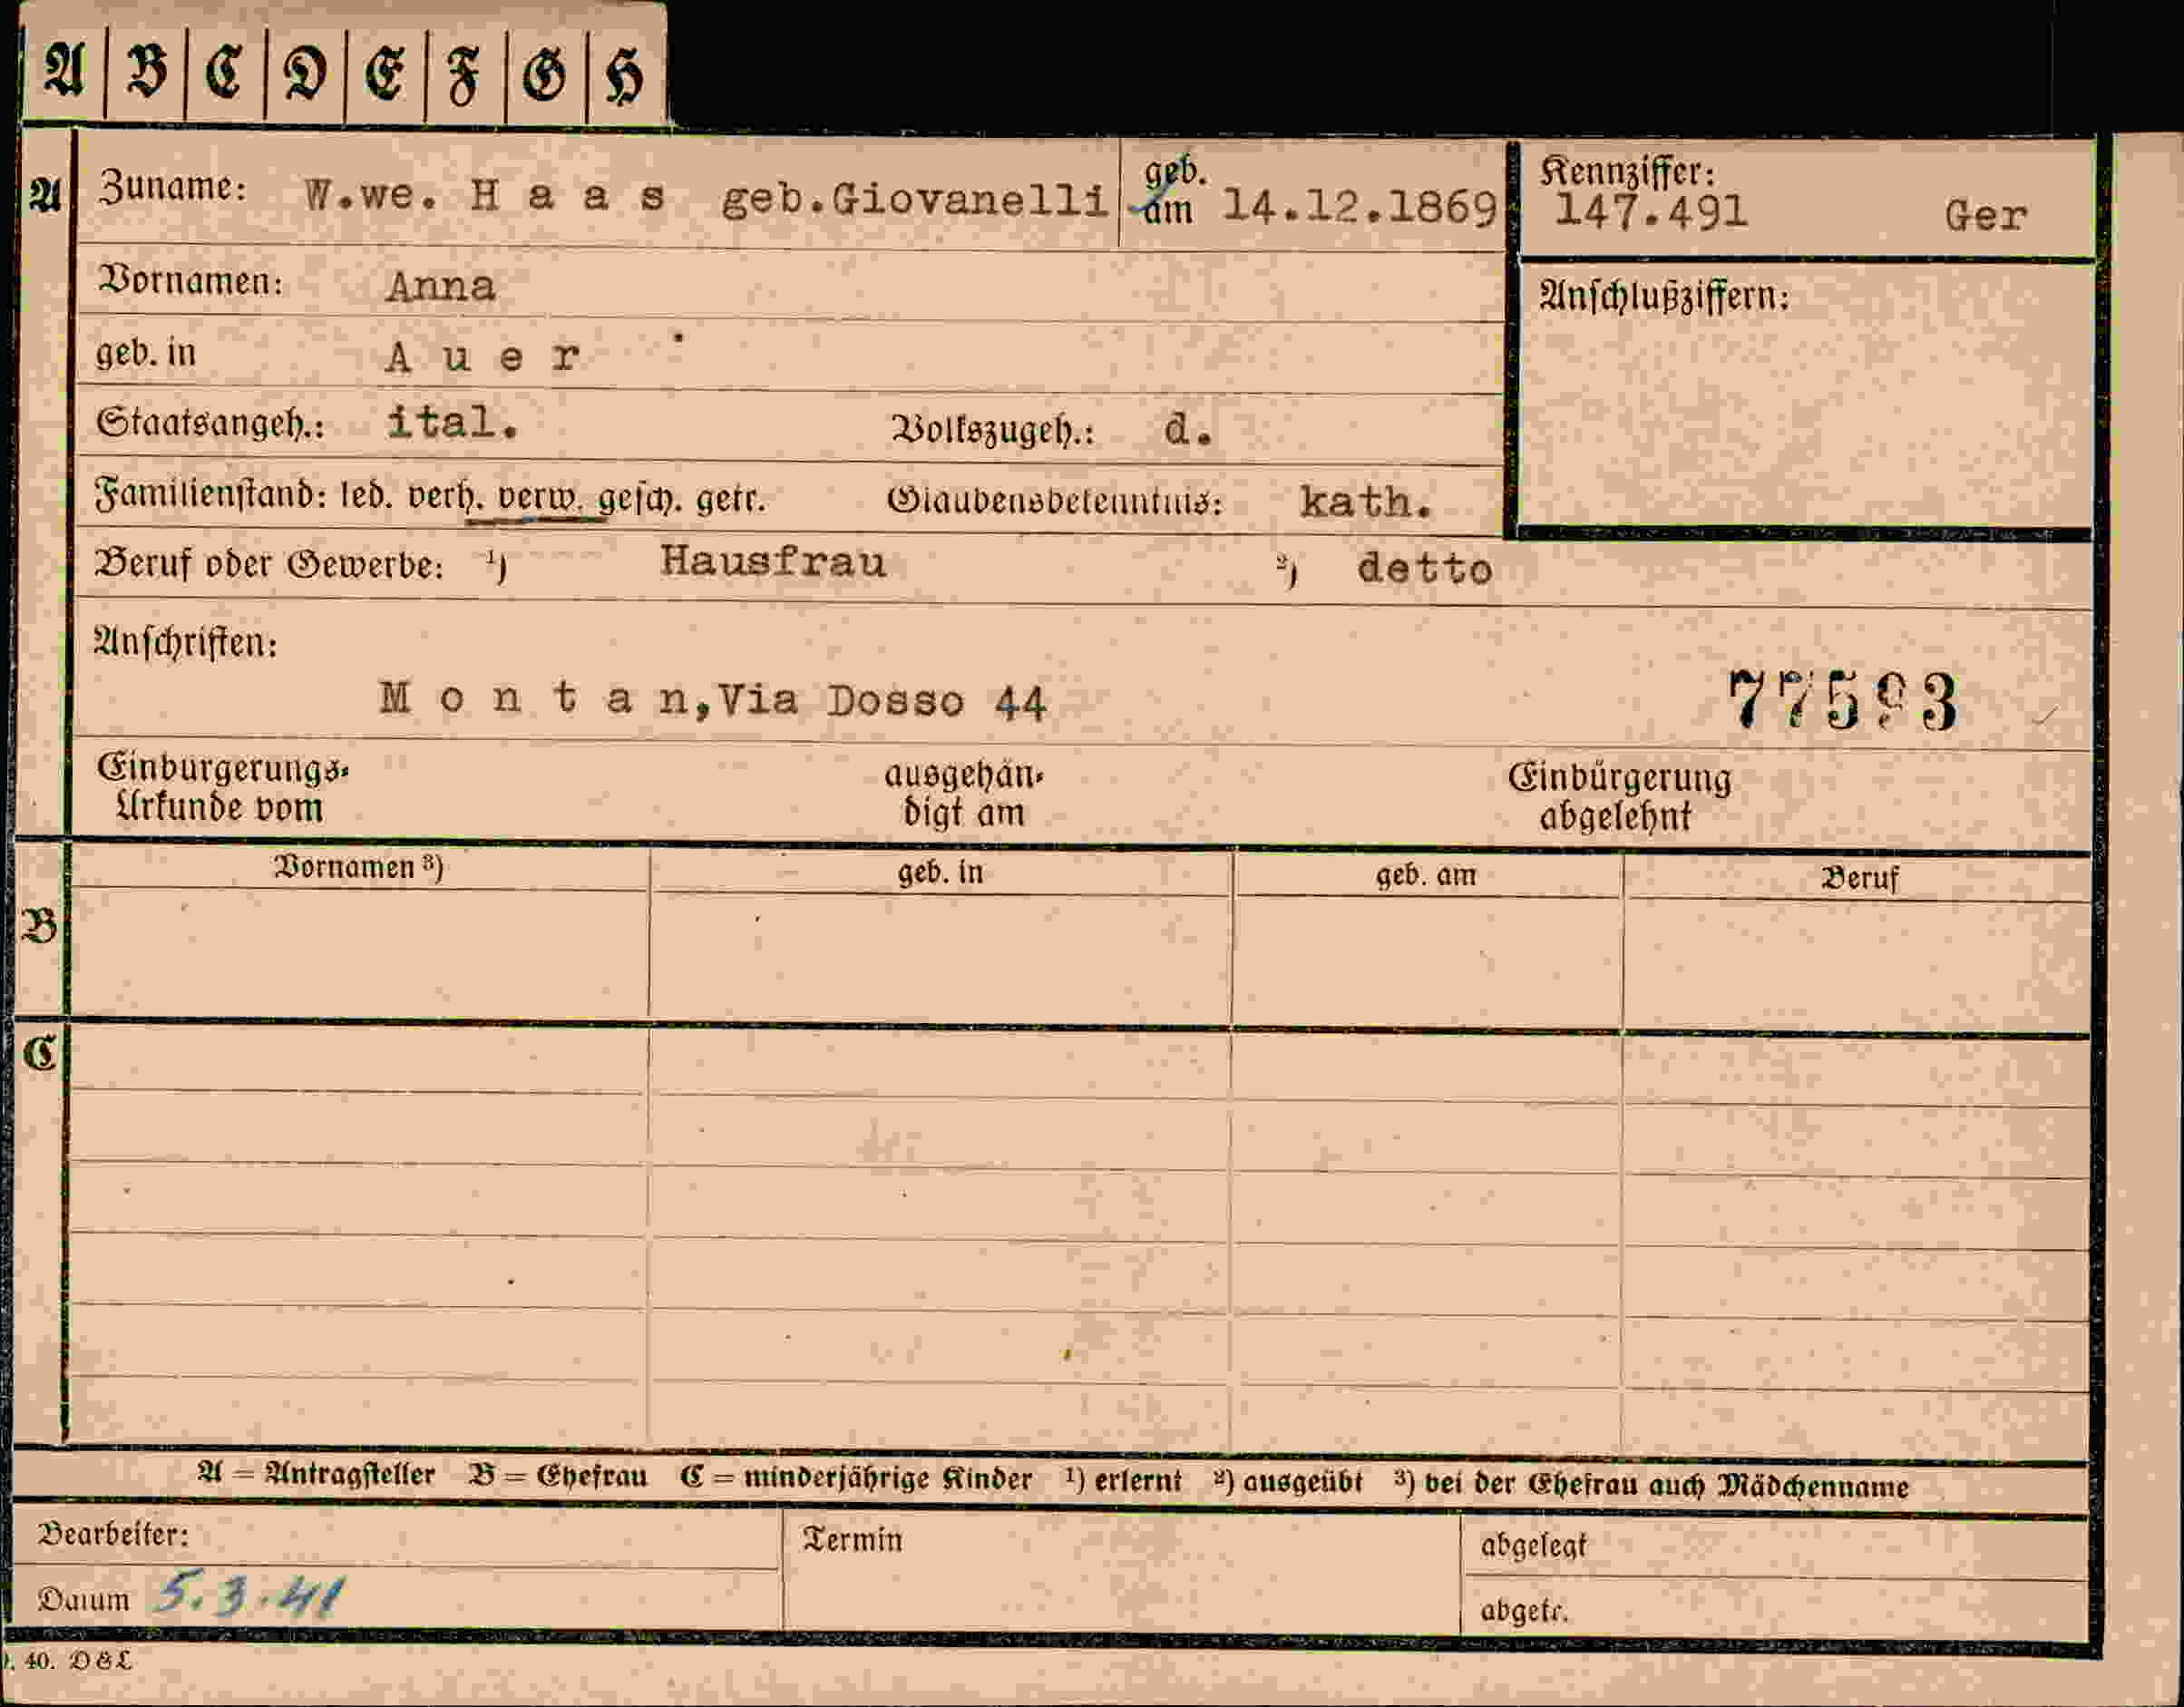 A B C D E F G H
A Zuname: W.we. H a a s geb.Giovanelli geb. am 14.12.1869 Kennziffer: 147.491 Ger
Vornamen: Anna
Anschlußziffern:
geb. in A u e r
Staatsangeh.: ital. Volkszugeh.: d.
Familienstand: led. verh. verw. gesch. getr. Glaubensbekenntnis: kath.
Beruf oder Gewerbe: ¹) Hausfrau ²) detto
Anschriften:
M o n t a n,Via Dosso 44
77593
Einbürgerungs-
Urkunde vom
ausgehän-
digt am
Einbürgerung
abgelehnt
Vornamen ³) geb. in geb. am Beruf
B
C
A = Antragsteller B = Ehefrau C = minderjährige Kinder ¹) erlernt ²) ausgeübt ³) bei der Ehefrau auch Mädchenname
Bearbeiter: Termin abgelegt
Datum 5.3.41 abgetr.
40. D&L